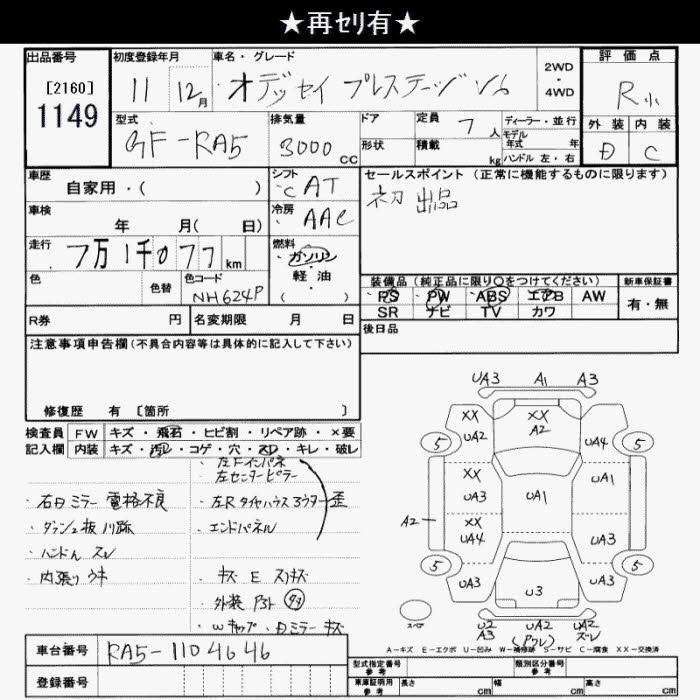 ★再セリ有★
出品番号
[2160]
1149
初度登録年月
11 12月
車名・グレード
オデッセイ プレステージ V6
2WD
・
4WD
評価点
R小
外装 内装
D C
型式
GF-RA5
排気量
3000CC
ドア
形状
定員 7人
積載 kg
ディーラー・並行
モデル
年式 年
ハンドル 左・右
車歴
自家用・( )
車検
年 月( 日)
走行
7万1千077km
シフト
CAT
冷房
AAC
燃料
ガソリン
軽油
( )
色
色替
色コード
NH624P
セールスポイント (正常に機能するものに限ります)
初出品
装備品 (純正品に限り○をつけてください)
PS PW ABS エアB AW
SR ナビ TV カワ
新車保証書
有・無
後日品
R券 円
名変期限 月 日
注意事項申告欄(不具合内容等は具体的に記入して下さい)
修復歴 有 [箇所 ]
検査員
記入欄
FW キズ・飛石・ヒビ割・リペア跡・×要
内装 キズ・汚レ・コゲ・穴・スレ・キレ・破レ
・左Fインパネ
・左センターピラー
・左Rタイヤハウス アウター 歪
・エンドパネル
・右ドミラー 電格不良
・ダッシュ板 川跡
・ハンドル スレ
・内張り ウキ
・キズ E スリキズ
・外装
・Wキャップ・ドミラー キズ
UA3 A1 A3
XX
UA2
XX
A2
UA4
5 5
XX
UA3
UA1
UA1
A2
XX
UA4
UA3
5 5
UA3
U3
UA3
スペア
U2
A3
UA2
(アワレ)
UA2
ズレ
A-キズ E-エクボ U-凹み W-補修跡 S-サビ C-腐食 XX-交換済
車台番号
RA5-1104646
登録番号
型式指定番号
参考
類別区分番号
参考
車庫証明用
参考
長さ cm 幅 cm 高さ cm